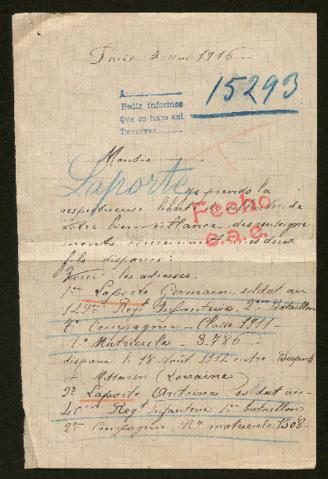 mai 1916
15293
A
Pedir informes
Que se haga asi
Devolver
Monsieur
Laporte
je prends la
respectueuse liberté de solliciter de
votre bienveillance, des renseigne
ments concernant mes deux
fils disparus:
Voici les adresses.
Fecho
c.a.c.
1er Laporte Germain, soldat au
Regt Infanterie, 2eme Bataillon
Compagnie - Classe 1911 -
No Matricule - 3.780 -
disparu le 18 Août
(Lorraine)
2e Laporte Antoine soldat au
Regt Infanterie 1er bataillon
2me Compagnie No matricule 1308